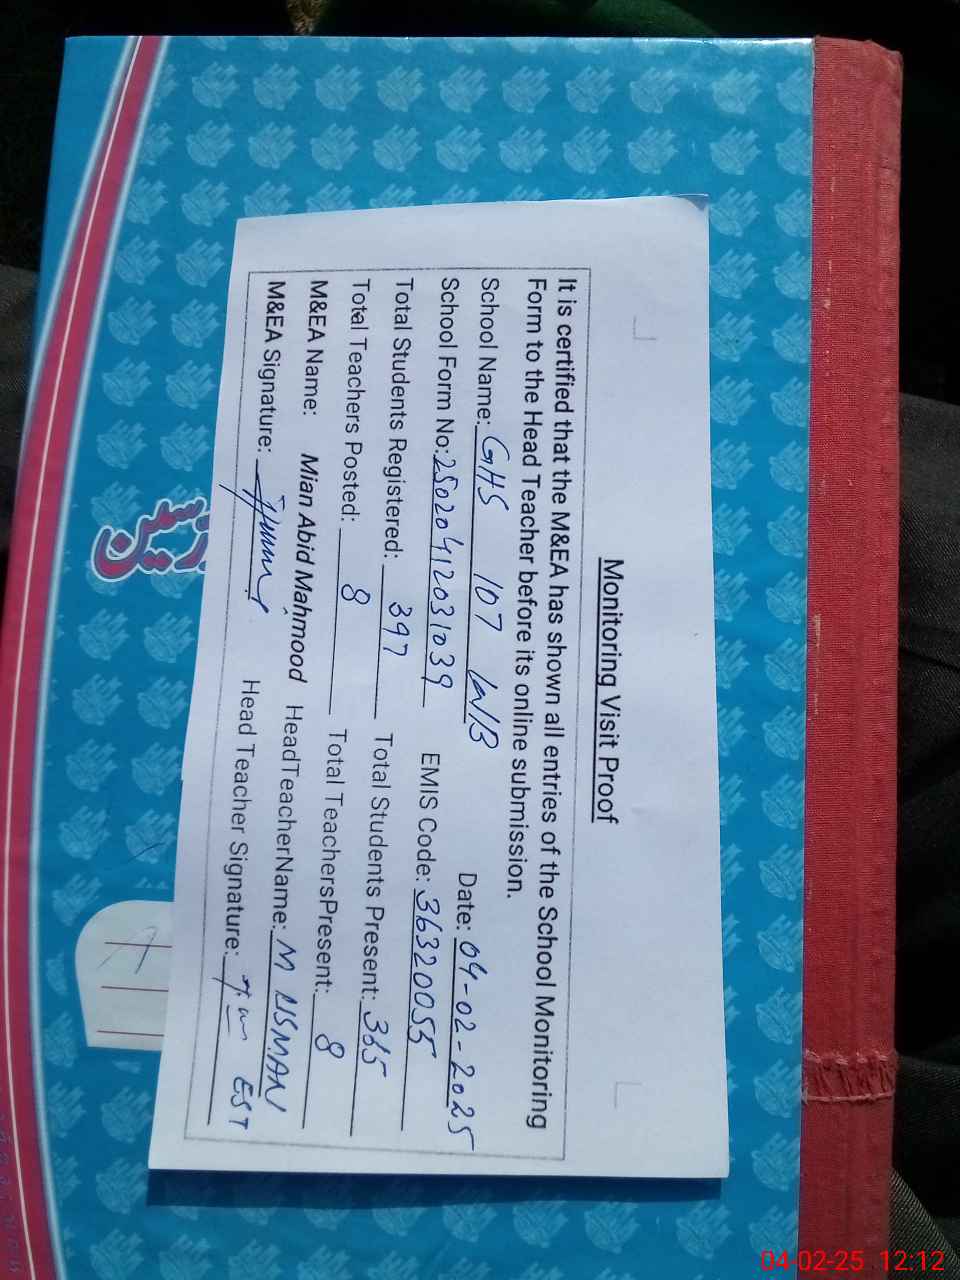 Monitoring Visit Proof
It is certified that the M&EA has shown all entries of the School Monitoring
Form to the Head Teacher before its online submission.
School Name: GHS 107 W/B Date: 04-02-2025
School Form No: 25020412031039 EMIS Code: 36320055
Total Students Registered: 397 Total Students Present: 365
Total Teachers Posted: 8 Total TeachersPresent: 8
M&EA Name: Mian Abid Mahmood HeadTeacherName: M USMAN
M&EA Signature: Head Teacher Signature: EST
04-02-25 12:12